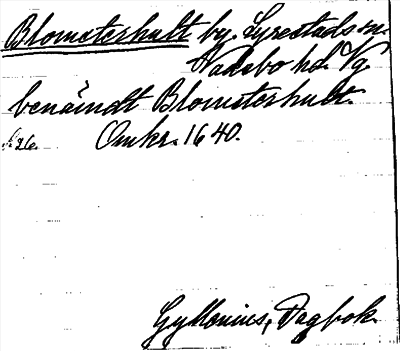 Blomsterhult by. Lyrestads sn.
Vadsbo hd. Vg.
benämdt Blomsterhult.
s. 26. Omkr. 1640.
Gyllenius, Dagbok.